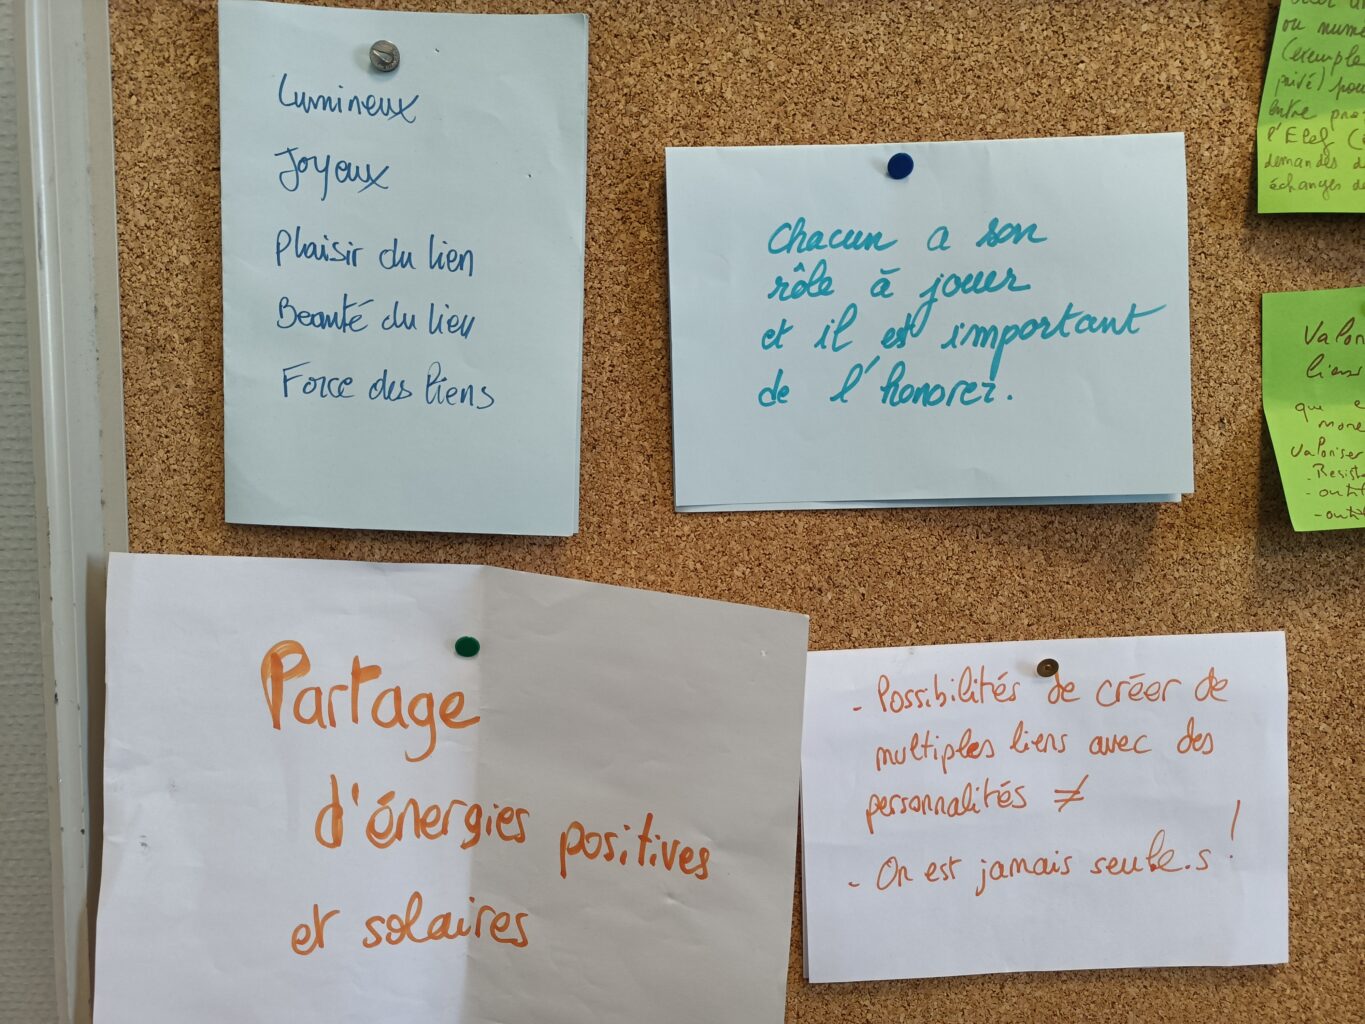 Lumineux
Joyeux
Plaisir du lien
Beauté du lien
Force des liens
Chacun a son
rôle à jouer
et il est important
de l'honorer.
ou numé
(exemple
privé) pour
entre pro
demandes d
échanges de
Valor
liens
que
Valoriser
- outil
- outil
Partage
d'énergies positives
et solaires
- Possibilités de créer de
multiples liens avec des
personnalités ≠
- On est jamais seule.s !